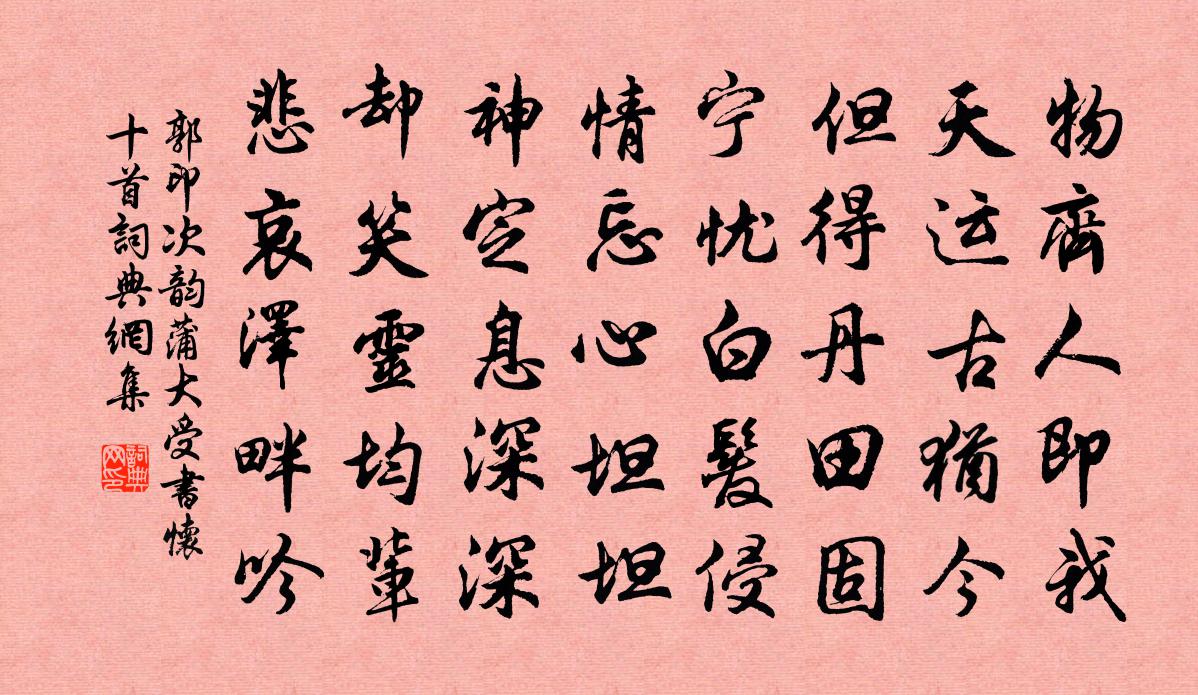 物齊人即我
天运古猶今
但得丹田固
宁忧白髮侵
情忘心坦坦
神定息深深
却笑靈均輩
悲哀澤畔吟
郭印次韵蒲大受書懷
十首詞典網集
詞典网印